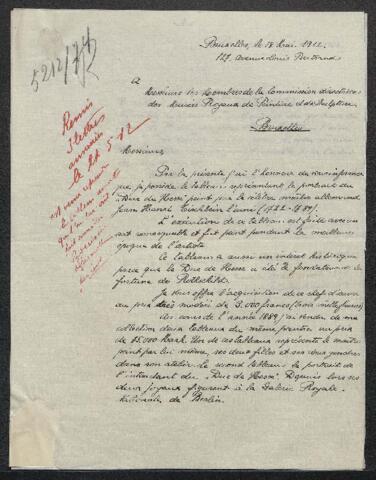 5212/74
Bruxelles, le 18 Mai 1912.
127, avenue Louis Bertrand
A
Messieurs les Membres de la Commission directrice
des Musées Royaux de Peinture et de Sculpture
Bruxelles
Remis
le 5-12
Messieurs
Par la présente j'ai l'honneur de vous informer
que je possède le tableau représentant le portrait du
Duc de Hesse peint par le célèbre maître allemand
Jean Henri Tischbein l'ainé (1722-1789).
L'exécution de ce tableau est faite avec un
art remarquable et fut peint pendant la meilleure
époque de l'artiste.
Ce tableau a aussi un intérêt historique
parce que le Duc de Hesse a été le fondateur de la
fortune de Rothschild.
Je vous offre l'acquisition de ce chef d'œuvre
au prix très modéré de 3.000 francs (trois mille francs)
Au cours de l'année 1889 j'ai vendu de ma
collection deux tableaux du même peintre, au prix
de 15.000 Mark. Un de ces tableaux représente le maître
peint par lui même, ses deux filles et ses deux gendres
dans son atelier, le second tableau le portrait de
l'intendant du "Duc de Hesse". Depuis lors ces
deux joyaux figurent à la Galerie Royale
Nationale de Berlin.